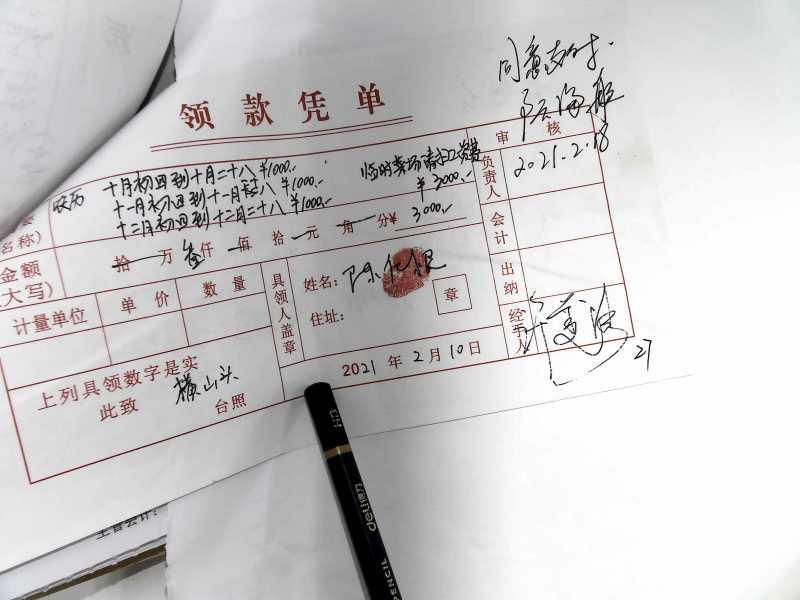 同意支付.
2021.2.18
领款凭单
农历 十月初四到十月二十八 ¥1000.-
十一月初四到十一月二十八 ¥1000.-
十二月初四到十二月二十八 ¥1000.-
临时菜场清扫工资费
¥3000.-
名称)
金额
(大写)
拾 万 叁仟 佰 拾 元 角 分¥ 3000.-
审核
负责人
会计
出纳
经手人
计量单位 单价 数量
具领人盖章
姓名:
住址:
章
2021年2月10日
上列具领数字是实
此致 横山头 台照
27
主管会计:
HB
deli得力
PENCIL